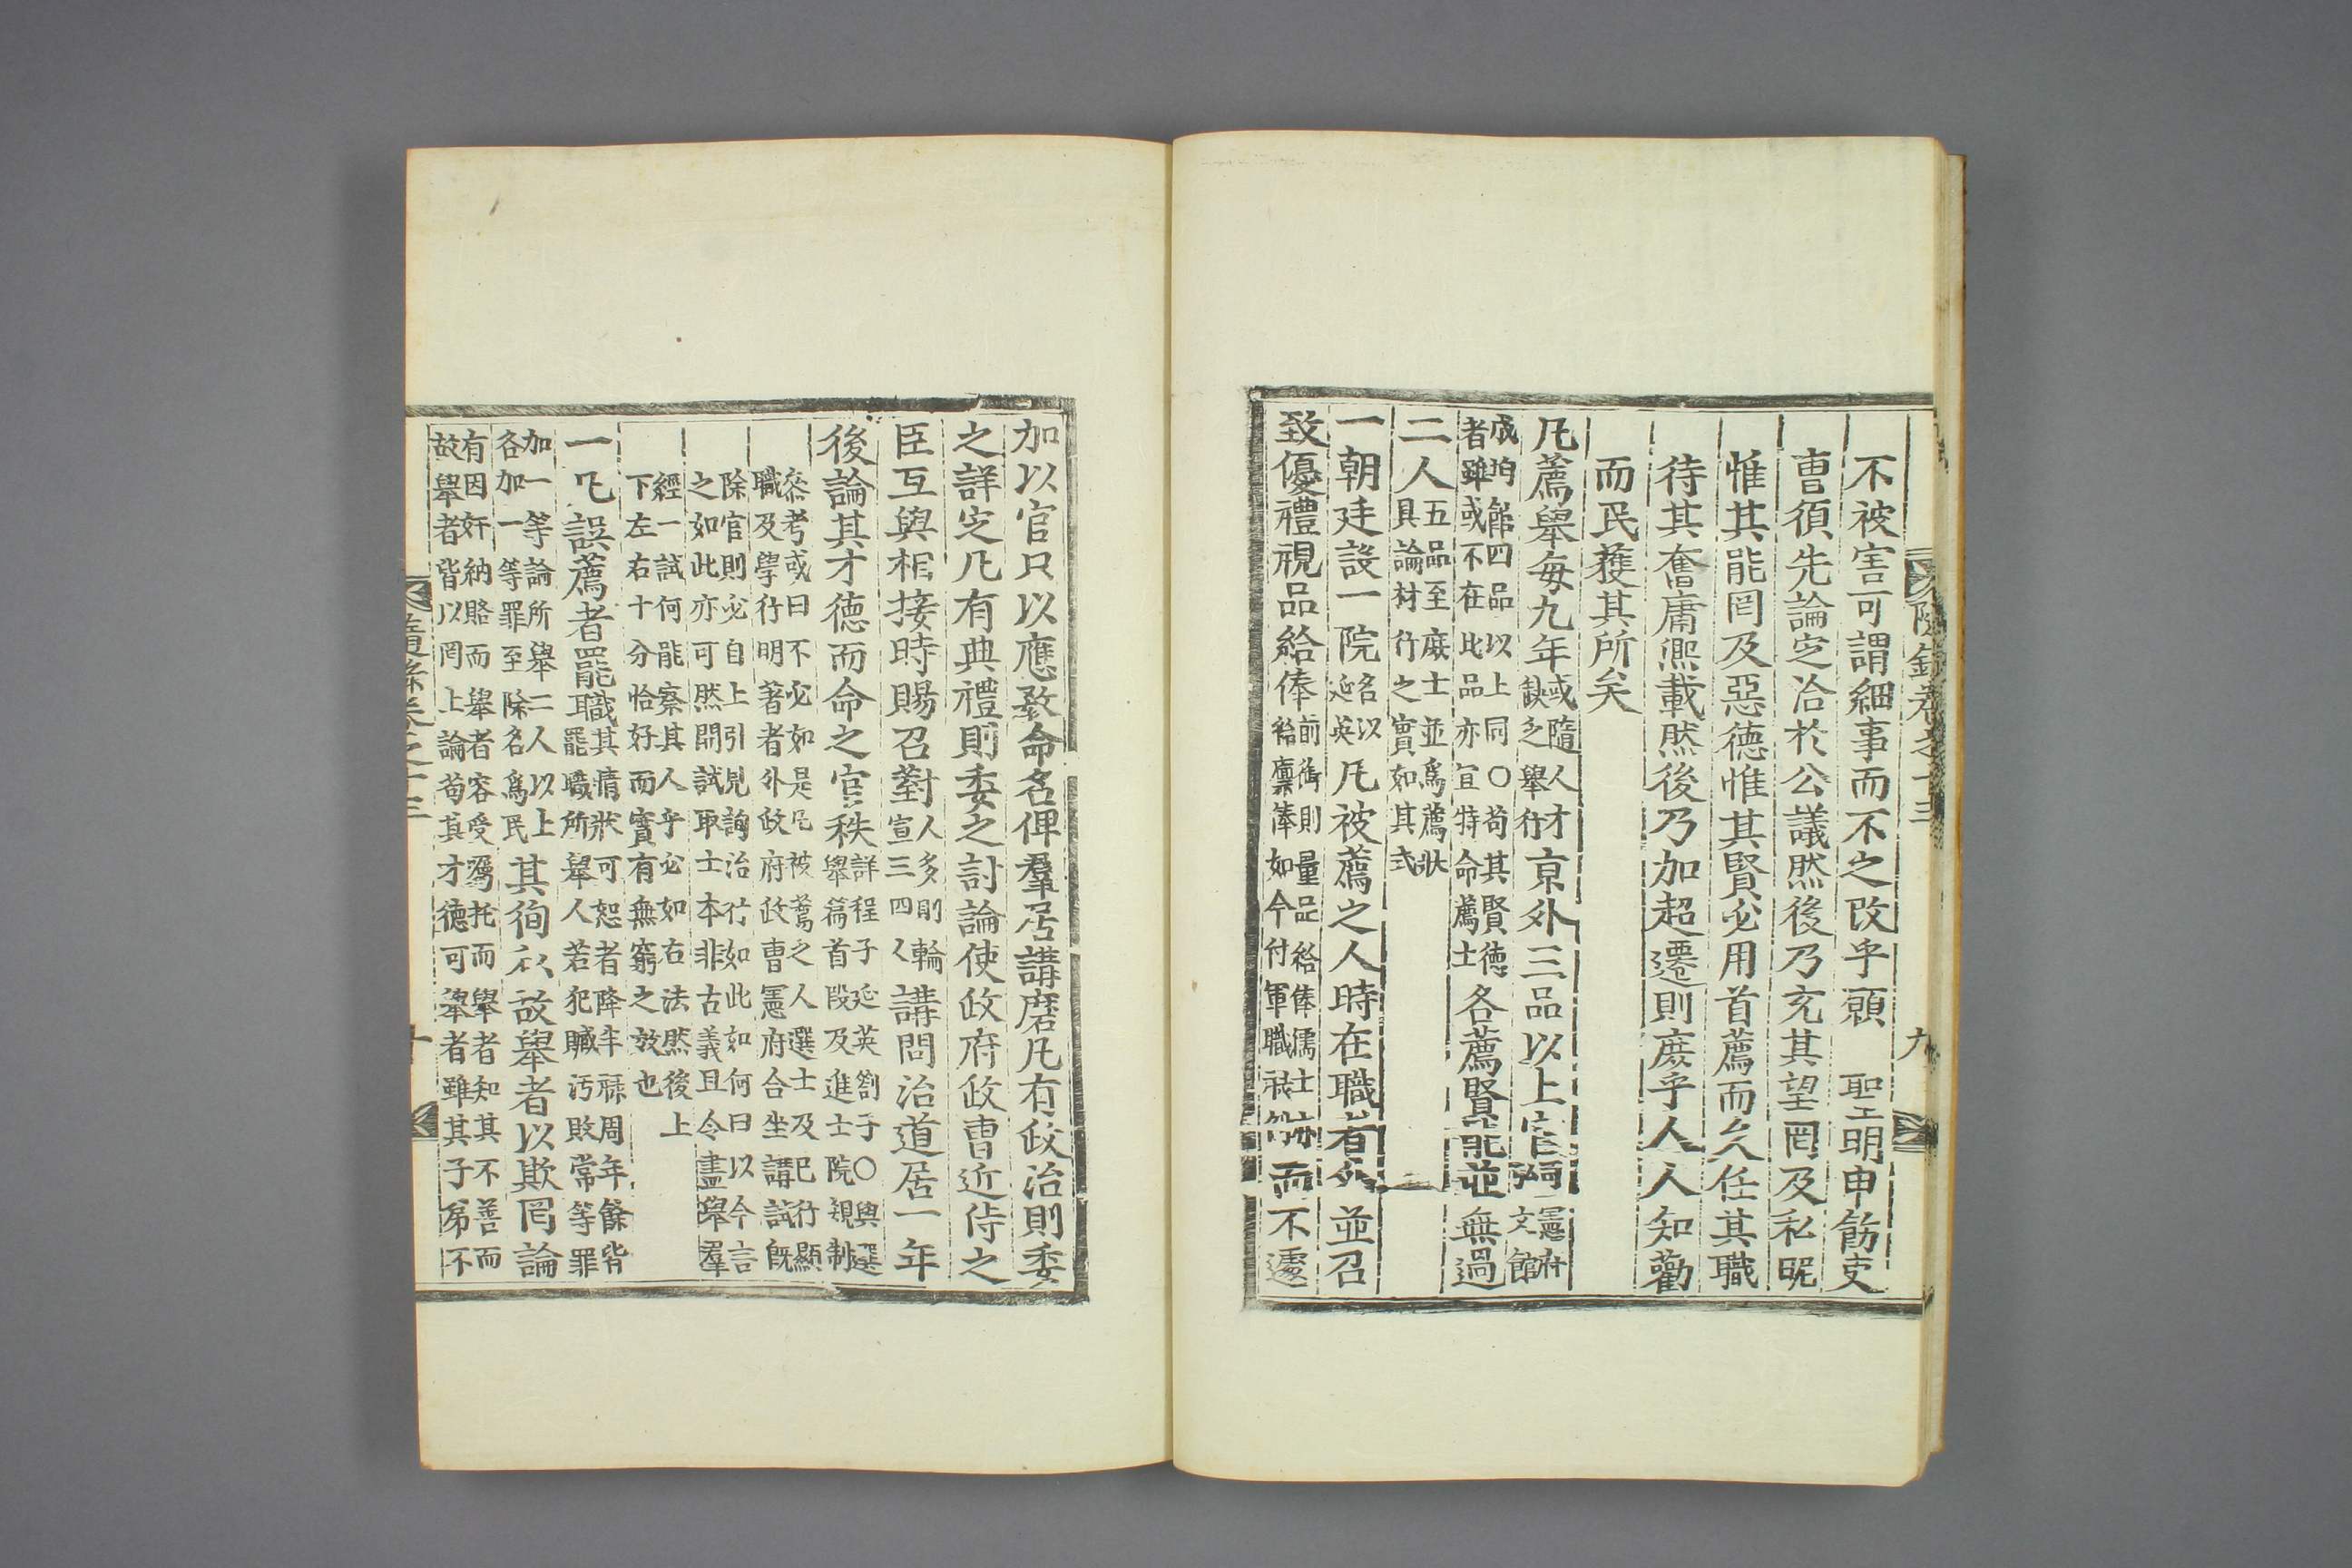 隨錄卷之十三 九
不被害可謂細事而不之改乎願 聖明申飭吏
曹須先論定洽於公議然後乃充其望罔及私昵
惟其能罔及惡德惟其賢必用首薦而久任其職
待其奮庸熙載然後乃加超遷則庶乎人人知勸
而民獲其所矣
凡薦舉每九年或隨人才
缺乏舉行京外三品以上官
憲府
文館
成均館四品以上同○苟其賢德
者雖或不在此品亦宜特命薦士各薦賢能並無過
二人五品至庶士並爲薦狀
具論材行之實如其式
一朝廷設一院名以
延英凡被薦之人時在職者外並召
致優禮視品給俸前銜則量品給俸儒士亦
給廩俸如今付軍職祿例而不遽
加以官只以應敎命名俾羣居講磨凡有政治則委
之詳定凡有典禮則委之討論使政府政曹近侍之
臣互與相接時賜召對人多則輪
宣三四人講問治道居一年
後論其才德而命之官秩詳程子延英劄子○與選
舉篇首段及進士院規制
叅考或曰不必如是凡被薦之人選士及已行顯
職及學行明著者外政府政曹憲府合坐講試旣
除官則必自上引見詢治行如此如何曰以今言
之如此亦可然閗試取士本非古義且令盡擧羣
經一試何能察其人乎必如右法然後上
下左右十分恰好而實有無窮之效也
一凡誤薦者罷職其情狀可恕者降半祿周年餘皆
罷職所舉人若犯贓汚敗常等罪
加一等論所舉二人以上
各加一等罪至除名爲民其徇私故舉者以欺罔論
有因奸納賂而舉者容受囑托而舉者知其不善而
故舉者皆以罔上論苟其才德可舉者雖其子弟不
隨錄卷之十三 十